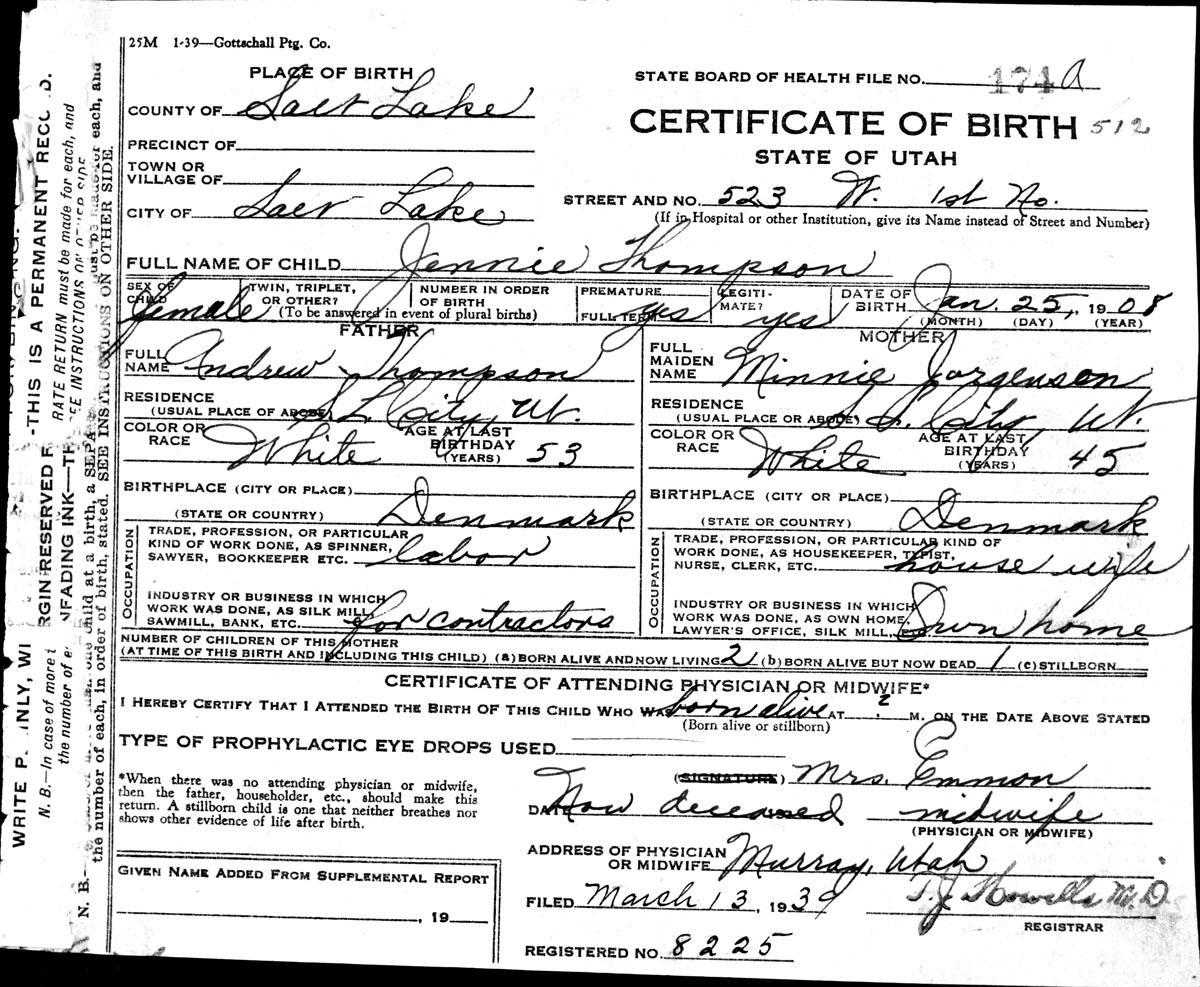 25M 1-39—Gottschall Ptg. Co.
PLACE OF BIRTH
COUNTY OF Salt Lake
PRECINCT OF
TOWN OR
VILLAGE OF
CITY OF Salt Lake
STATE BOARD OF HEALTH FILE NO. 174 a
CERTIFICATE OF BIRTH 512
STATE OF UTAH
STREET AND NO. 523 W. 1st No.
(If in Hospital or other Institution, give its Name instead of Street and Number)
FULL NAME OF CHILD Jennie Thompson
SEX OF
CHILD female
TWIN, TRIPLET,
OR OTHER?
NUMBER IN ORDER
OF BIRTH
(To be answered in event of plural births)
PREMATURE
FULL TERM yes
LEGITI-
MATE? yes
DATE OF
BIRTH Jan. 25, 1908
(MONTH) (DAY) (YEAR)
FATHER
FULL
NAME Andrew Thompson
RESIDENCE
(USUAL PLACE OF ABODE) S. L. City, Ut.
COLOR OR
RACE White
AGE AT LAST
BIRTHDAY
(YEARS) 53
BIRTHPLACE (CITY OR PLACE)
(STATE OR COUNTRY) Denmark
OCCUPATION
TRADE, PROFESSION, OR PARTICULAR
KIND OF WORK DONE, AS SPINNER,
SAWYER, BOOKKEEPER ETC. labor
INDUSTRY OR BUSINESS IN WHICH
WORK WAS DONE, AS SILK MILL,
SAWMILL, BANK, ETC. for contractors
MOTHER
FULL
MAIDEN
NAME Minnie Jorgenson
RESIDENCE
(USUAL PLACE OR ABODE) S. L. City, Ut.
COLOR OR
RACE White
AGE AT LAST
BIRTHDAY
(YEARS) 45
BIRTHPLACE (CITY OR PLACE)
(STATE OR COUNTRY) Denmark
OCCUPATION
TRADE, PROFESSION, OR PARTICULAR KIND OF
WORK DONE, AS HOUSEKEEPER, TYPIST,
NURSE, CLERK, ETC. house wife
INDUSTRY OR BUSINESS IN WHICH
WORK WAS DONE, AS OWN HOME,
LAWYER'S OFFICE, SILK MILL, ETC. Own home
NUMBER OF CHILDREN OF THIS MOTHER
(AT TIME OF THIS BIRTH AND INCLUDING THIS CHILD) (a) BORN ALIVE AND NOW LIVING 2 (b) BORN ALIVE BUT NOW DEAD 1 (c) STILLBORN
CERTIFICATE OF ATTENDING PHYSICIAN OR MIDWIFE*
I HEREBY CERTIFY THAT I ATTENDED THE BIRTH OF THIS CHILD WHO WAS born alive AT ? M. ON THE DATE ABOVE STATED
(Born alive or stillborn)
TYPE OF PROPHYLACTIC EYE DROPS USED
*When there was no attending physician or midwife,
then the father, householder, etc., should make this
return. A stillborn child is one that neither breathes nor
shows other evidence of life after birth.
(SIGNATURE) Mrs. Emmon
DATE Now deceased midwife
(PHYSICIAN OR MIDWIFE)
ADDRESS OF PHYSICIAN
OR MIDWIFE Murray, Utah
FILED March 13, 1939 T. J. Howells M. D.
REGISTRAR
REGISTERED NO. 8225
GIVEN NAME ADDED FROM SUPPLEMENTAL REPORT
, 19